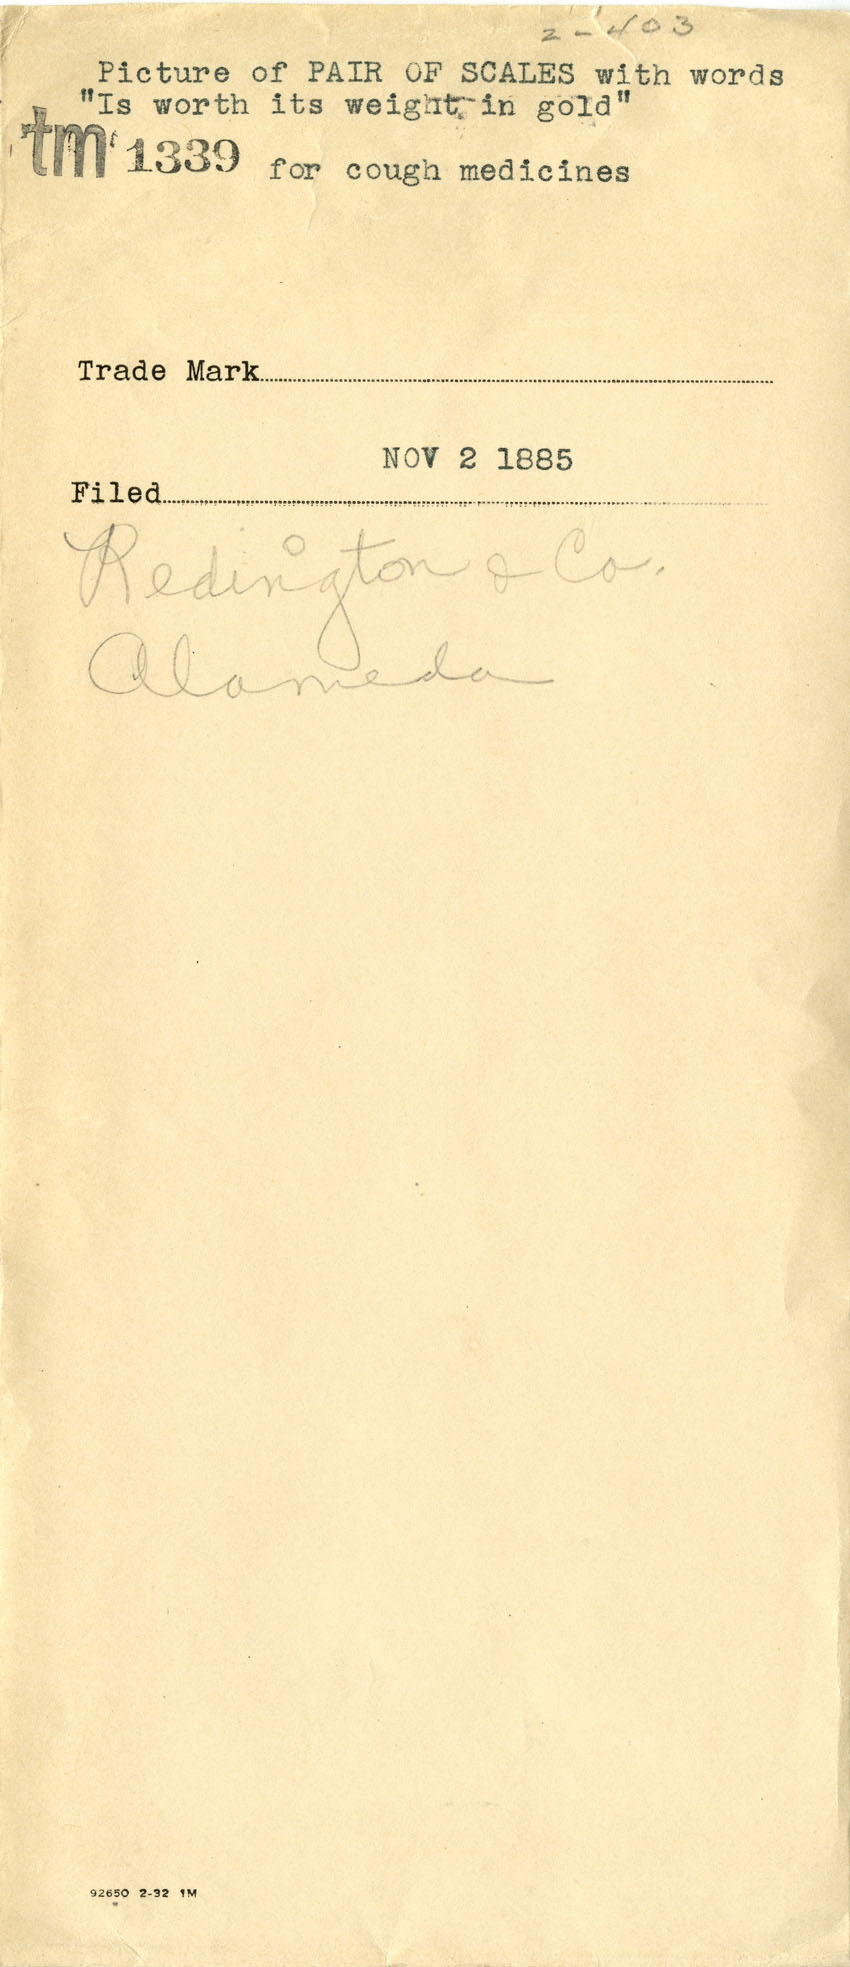 2-403
Picture of PAIR OF SCALES with words
"Is worth its weight in gold"
tm 1339 for cough medicines
Trade Mark
NOV 2 1885
Filed
Redington & Co.
Alameda
92650 2-32 1M